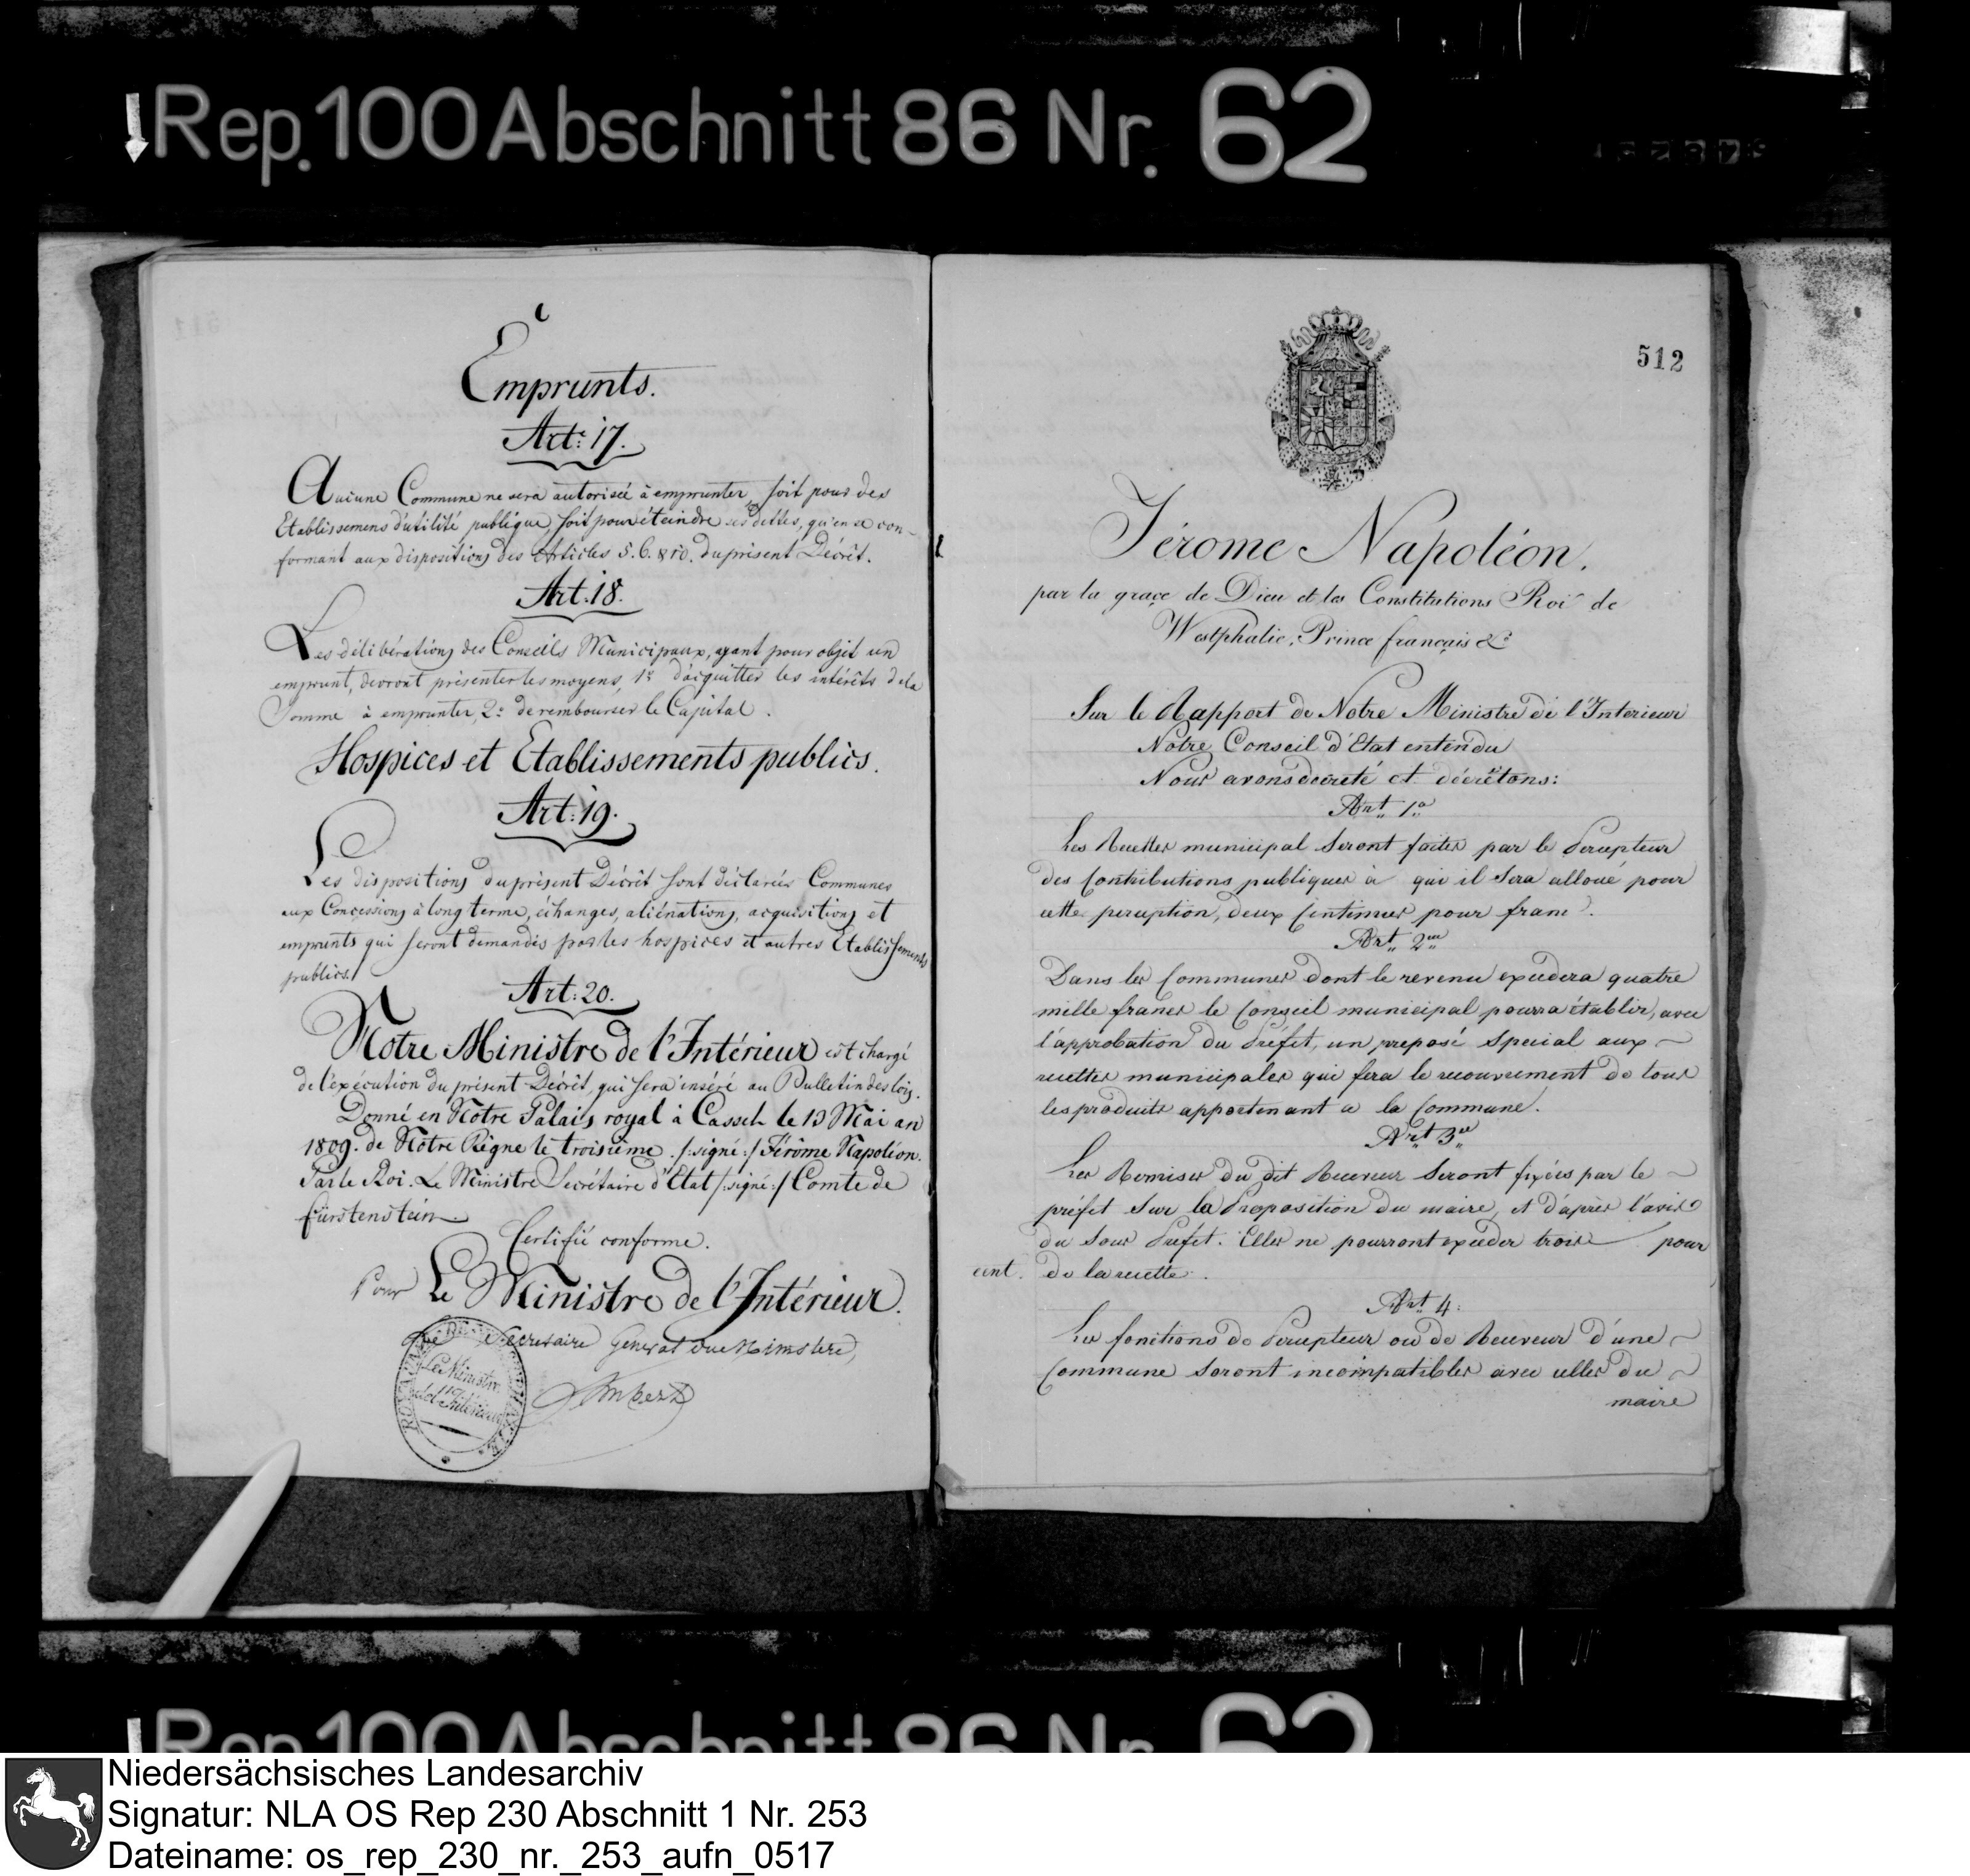 Rep. 100 Abschnitt 86 Nr. 62
Emprunts.
Art: 17.
Aucune Commune ne sera autorisée à emprunter, soit pour des
Etablissemens d'utilité publique, soit pour éteindre ses dettes, qu'en se con-
formant aux dispositions des Articles 5. 6. & 10. du présent Décrêt.
Art. 18.
Les délibérations des Conseils Municipaux, ayant pour objet un
emprunt, devront présenter les moyens, 1º d'acquitter les intérêts de la
Somme à emprunter, 2º de rembourser le Capital.
Hospices et Etablissements publics.
Art: 19.
Les dispositions du présent Décrêt sont déclarées Communes
aux Concessions à long terme, échanges, aliénations, acquisitions et
emprunts qui seront demandés par les hospices et autres Etablissements
publics.
Art: 20.
Notre Ministre de l'Intérieur est chargé
de l'exécution du présent Décrêt, qui sera inséré au Bulletin des lois.
Donné en Notre Palais royal à Cassel le 13 Mai an
1809. de Notre Règne le troisième. /:signé:/ Jérôme Napoléon.
Par le Roi. Le Ministre Secrétaire d'Etat /:signé:/ Comte de
fürstenstein.
Certifié conforme.
Pour Le Ministre de l'Intérieur.
Le Secretaire General du Ministere,
Le Ministre
de l'Intérieur
512
Jérome Napoléon,
par la graçe de Dieu et les Constitutions Roi de
Westphalie, Prince français &c
Sur le Rapport de Notre Ministre de l'Interieur
Notre Conseil d'Etat entendu
Nous avons decreté et décrêtons:
Art. 1.
Les Recettes municipal seront faites par le Percepteur
des Contributions publiques à qui il sera alloué pour
cette perception, deux Centimes pour franc.
Art. 2
Dans les Communes dont le revenu excedera quatre
mille francs le Conseil municipal pourra établir, avec
l'approbation du Prefet, un preposé special aux
recettes municipales qui fera le recouvrement de tous
les produits appartenant a la Commune.
Art 3
Les Remises du dit Receveur seront fixées par le
préfet sur la Proposition du maire, et d'après l'avis
du sous Prefet. Elles ne pourront exceder trois pour
cent. de la recette.
Art. 4.
Les fonctions de Percepteur ou de Receveur d'une
Commune seront incompatibles avec celles du
maire
Rep. 100 Abschnitt 86 Nr. 62
Niedersächsisches Landesarchiv
Signatur: NLA OS Rep 230 Abschnitt 1 Nr. 253
Dateiname: os_rep_230_nr._253_aufn_0517